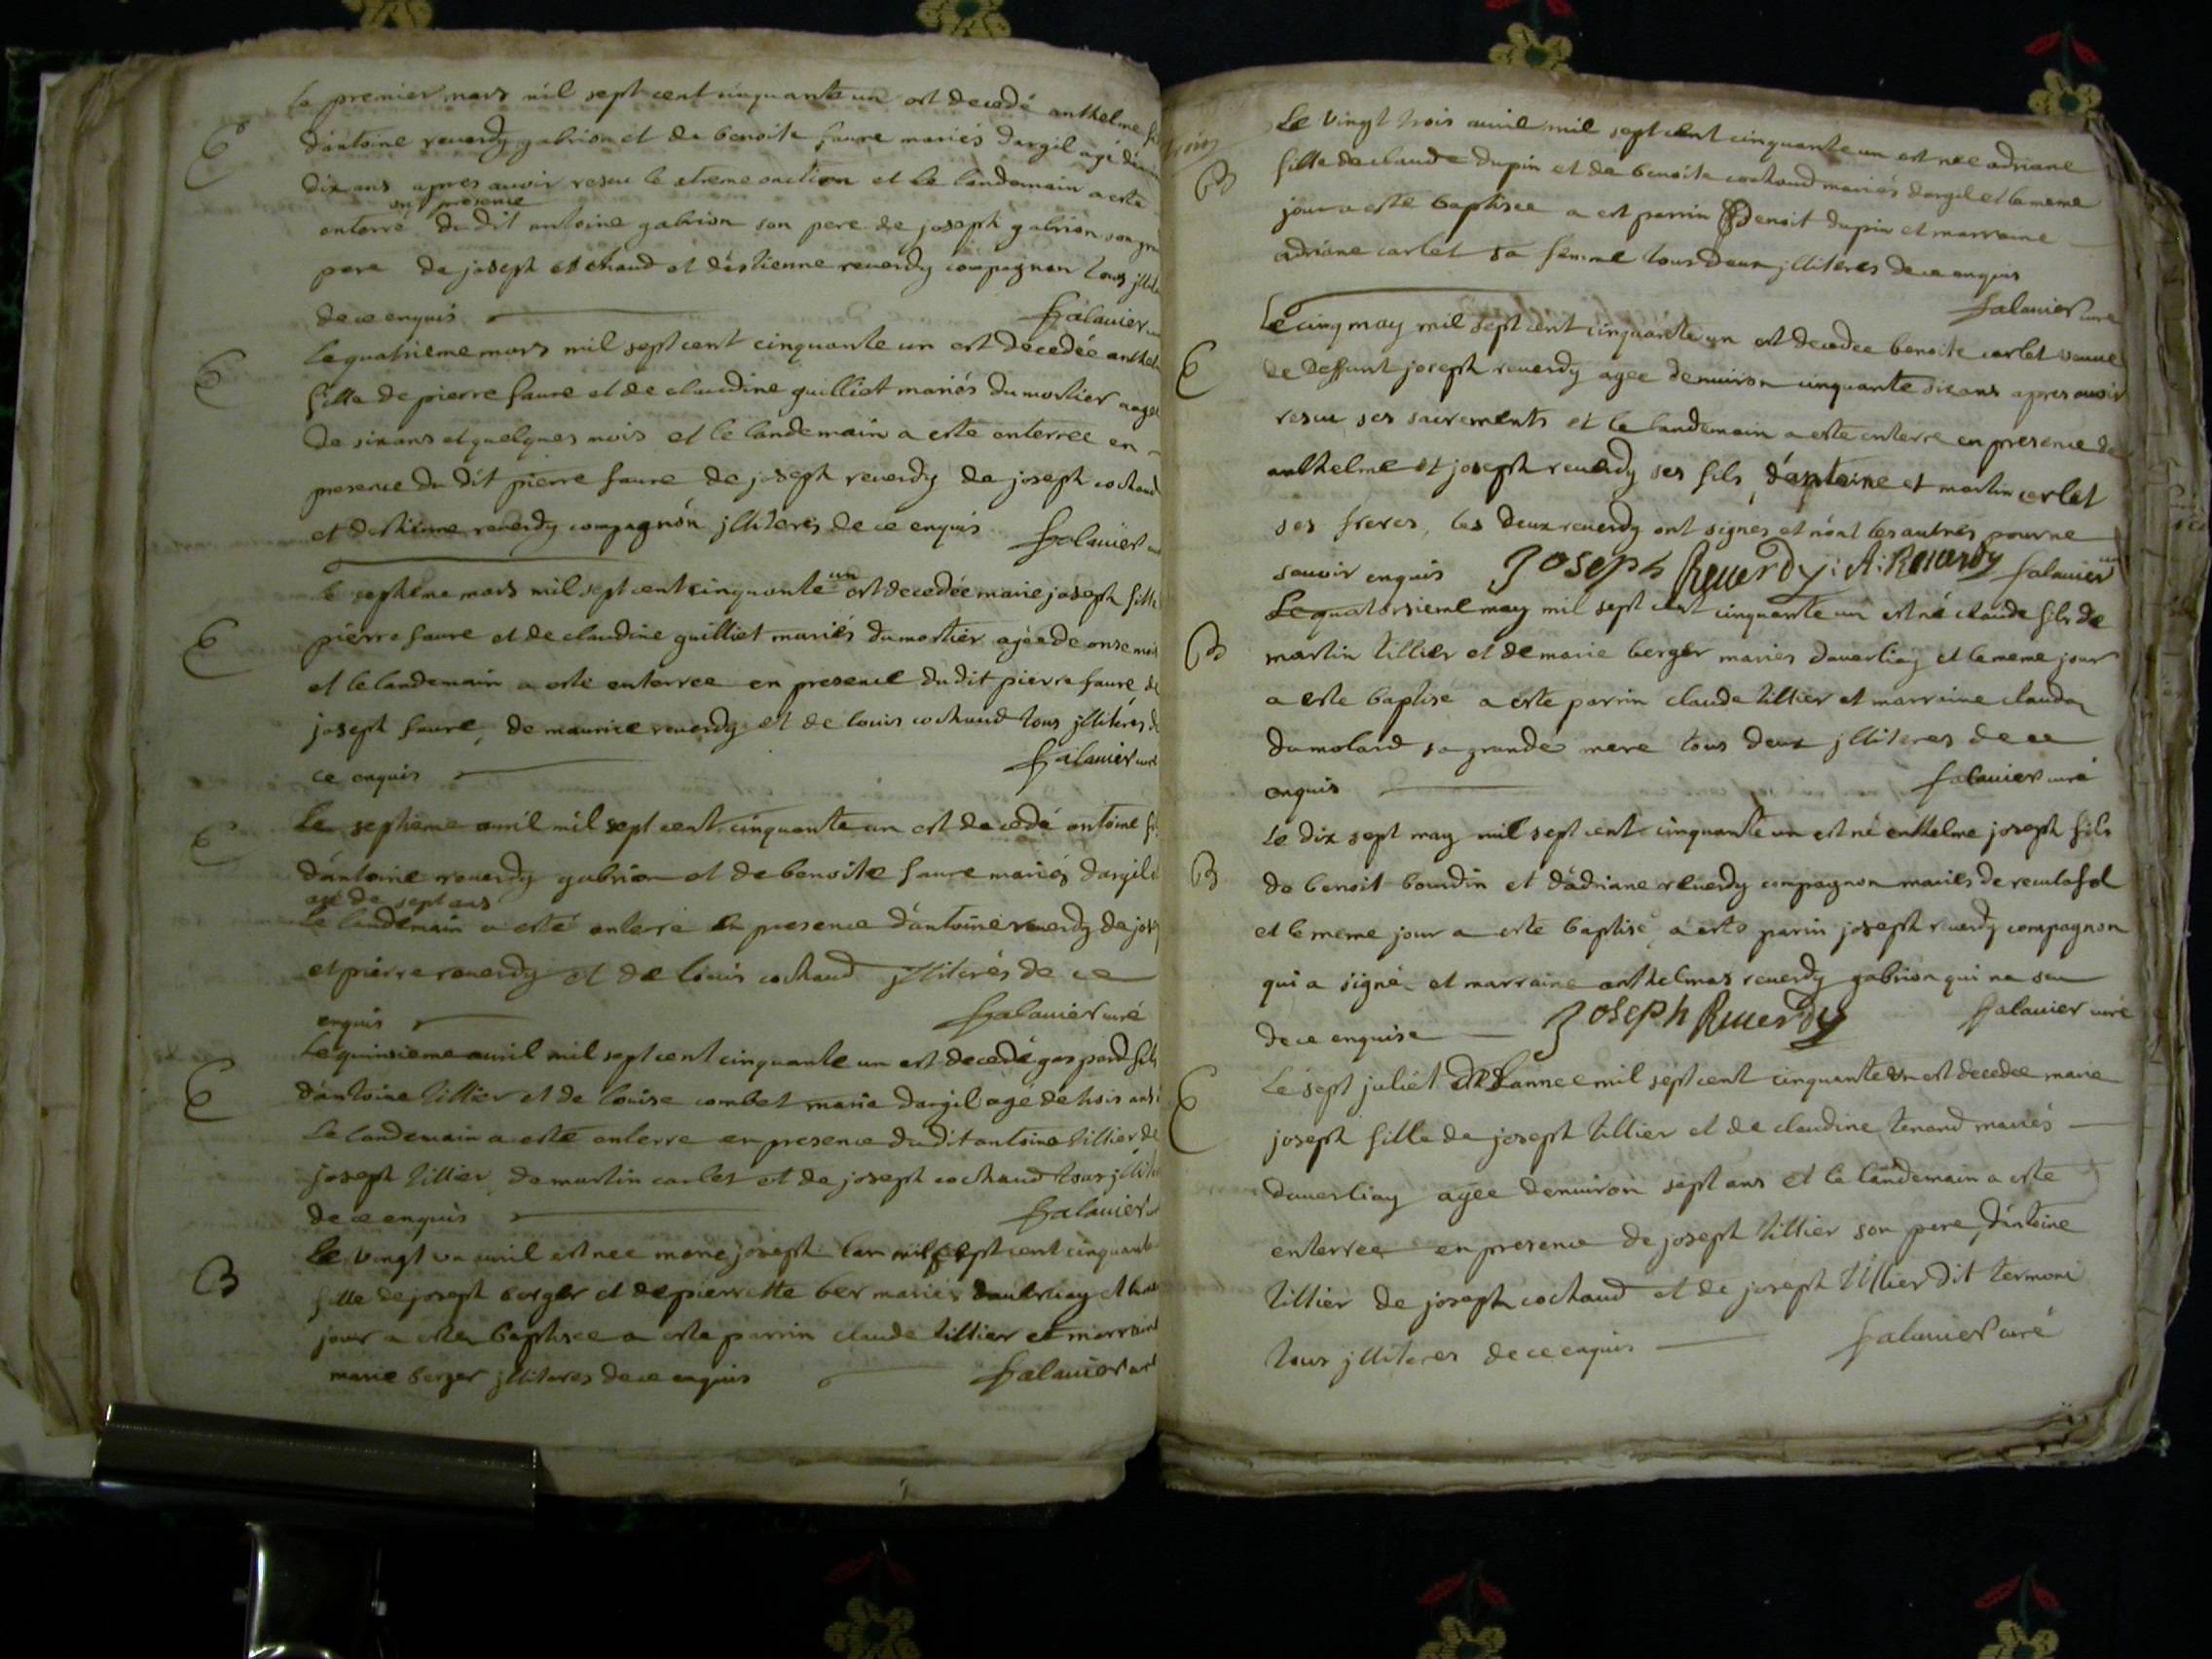 Le premier mars mil sept cent cinquante un est decedé anthelme
E
d'antoine reuerdy gabrion et de benoite faure mariés dargil agé
dix ans apres auoir resçu le streme onction et le landemain a este
en presence
enterré du dit antoine gabrion son pere de joseph gabrion son
pere de joseph cochaud et d'estienne reuerdy compagnon tous
de ce enquis falauier
Le quatrieme mars mil sept cent cinquante un est decedée
E
fille de pierre faure et de claudine guilliot mariés du mortier
de six ans et quelques mois et le landemain a este enterrée en
presence du dit pierre faure de joseph reuerdy de joseph cochaud
et destienne reuerdy compagnon jlliteres de ce enquis falauier
le septieme mars mil sept cent cinquante un est decedée marie joseph fille
E
pierre faure et de claudine guilliet mariés du mortier agée de onse mois
et le landemain a este enterree en presence du dit pierre faure de
joseph faure, de maurice reuerdy et de louis cochaud tous jlliterés de
ce enquis falauier curé
Le septieme auril mil sept cent cinquante un est decedé antoine
E
d'antoine reuerdy gabrion et de benoite faure mariés dargil
agé de sept ans
Le landemain a esté enterré en presence d'antoine reuerdy de
et pierre reuerdy et de louis cochaud jlliterés de ce
enquis falauier curé
Le quinsieme auril mil sept cent cinquante un est decedé gaspard fils
E
d'antoine tillier et de louise combet marie dargil age de trois ans
Le landemain a este enterre en presence du dit antoine tillier de
joseph tillier, de martin carlet et de joseph cochaud tous
de ce enquis falauier
Le vingt un auril est nee marie joseph lan mil sept cent cinquante
B
fille de joseph berger et de pierrette ber mariés dauerliay et
jour a este baptisee a este parrin claude tillier et marraine
marie berger jlliteres de ce enquis falauier curé
Le vingt trois auril mil sept cent cinquante un est née adriane
B
fille de claude dupin et de benoite cochaud mariés dargil et le meme
jour a esté baptisee a est parrin Benoit dupin et marraine
adriane carlet sa femme tous deux jlliteres de ce enquis
falauier curé
Le cinq may mil sept cent cinquante un est decedee benoite carlet veuue
E
de deffunt joseph reuerdy agee denuiron cinquante six ans apres auoir
resçu ses sacrements et le landemain a este enterre en presence de
anthelme et joseph reuerdy ses fils, d'antoine et martin carlet
ses freres, les deux reuerdy ont signés et nont les autres pour ne
sauoir enquis Joseph Reuerdy: A: Reuerdy falauier
Le quatorsieme may mil sept cent cinquante un est né claude fils de
B
martin tillier et de marie berger mariés dauerliay et le meme jour
a este baptisé a este parrin claude tillier et marraine clauda
dumolard sa grande mere tous deux jlliteres de ce
enquis falauier curé
Le dix sept may mil sept cent cinquante un est né enthelme joseph fils
B
de benoit bourdin et d'adriane reuerdy compagnon mariés de reculafol
et le meme jour a este baptisé, a este parrin joseph reuerdy compagnon
qui a signé et marraine anthelmas reuerdy gabrion qui na sçu
de ce enquise Joseph Reuerdy falauier curé
Le sept juliet de lannee mil sept cent cinquante un est decedee marie
E
joseph fille de joseph tillier et de claudine tenand mariés
dauerliay agée denuiron sept ans et le landemain a este
enterree en presence de joseph tillier son pere, d'antoine
tillier de joseph cochaud et de joseph tillier dit termoni
tous jlliteres de ce enquis falauier curé